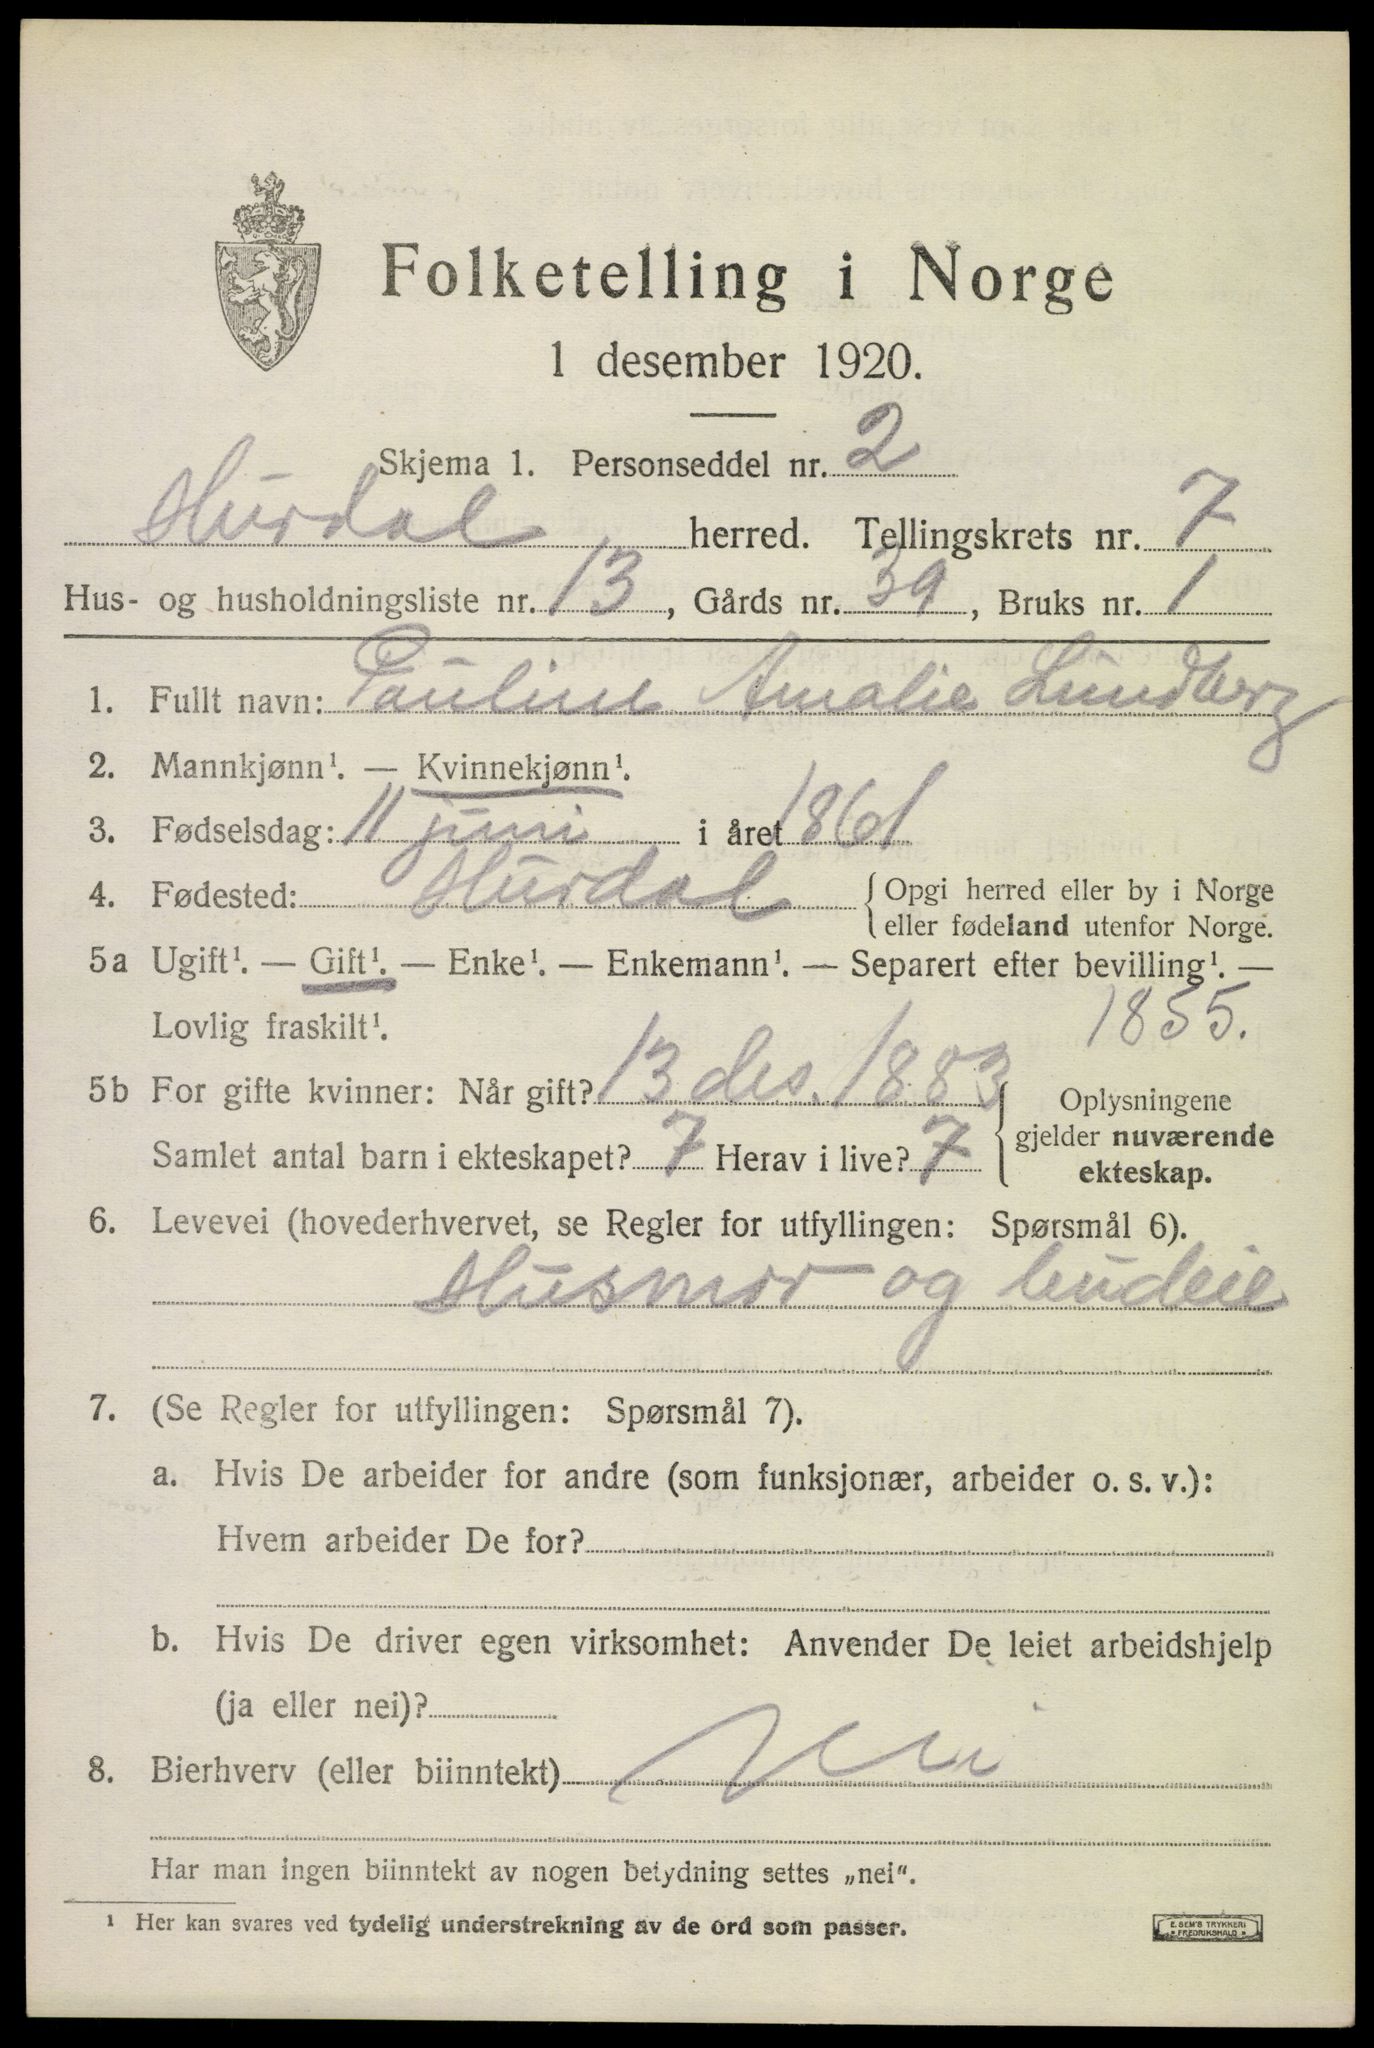 Folketelling i Norge
1 desember 1920.
Skjema 1. Personseddel nr. 2
Hurdal herred. Tellingskrets nr. 7
Hus- og husholdningsliste nr. 13, Gårds nr. 39, Bruks nr. 1
1. Fullt navn: Pauline Amalie Lundberg
2. Mannkjønn¹. — Kvinnekjønn¹.
3. Fødselsdag: 11 juni i året 1861
4. Fødested: Hurdal { Opgi herred eller by i Norge
eller fødeland utenfor Norge.
5a Ugift¹. — Gift¹. — Enke¹. — Enkemann¹. — Separert efter bevilling¹. —
Lovlig fraskilt¹. 1855.
5b For gifte kvinner: Når gift? 13 des. 1883 { Oplysningene
gjelder nuværende
ekteskap.
Samlet antal barn i ekteskapet? 7 Herav i live? 7
6. Levevei (hovederhvervet, se Regler for utfyllingen: Spørsmål 6).
Husmor og budeie
7. (Se Regler for utfyllingen: Spørsmål 7).
a. Hvis De arbeider for andre (som funksjonær, arbeider o. s. v.):
Hvem arbeider De for?
b. Hvis De driver egen virksomhet: Anvender De leiet arbeidshjelp
(ja eller nei)?
8. Bierhverv (eller biinntekt) Nei
Har man ingen biinntekt av nogen betydning settes „nei“.
¹ Her kan svares ved tydelig understrekning av de ord som passer.
E. SEM'S TRYKKERI
» FREDRIKSHALD »